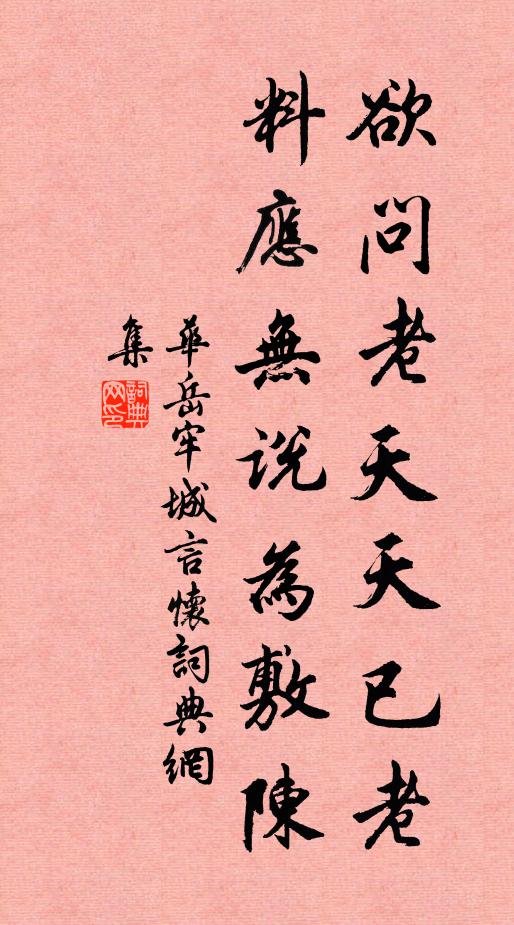 欲問老天天已老
料應無說為敷陳
華岳牢城言懷詞典網
集
詞典
网印